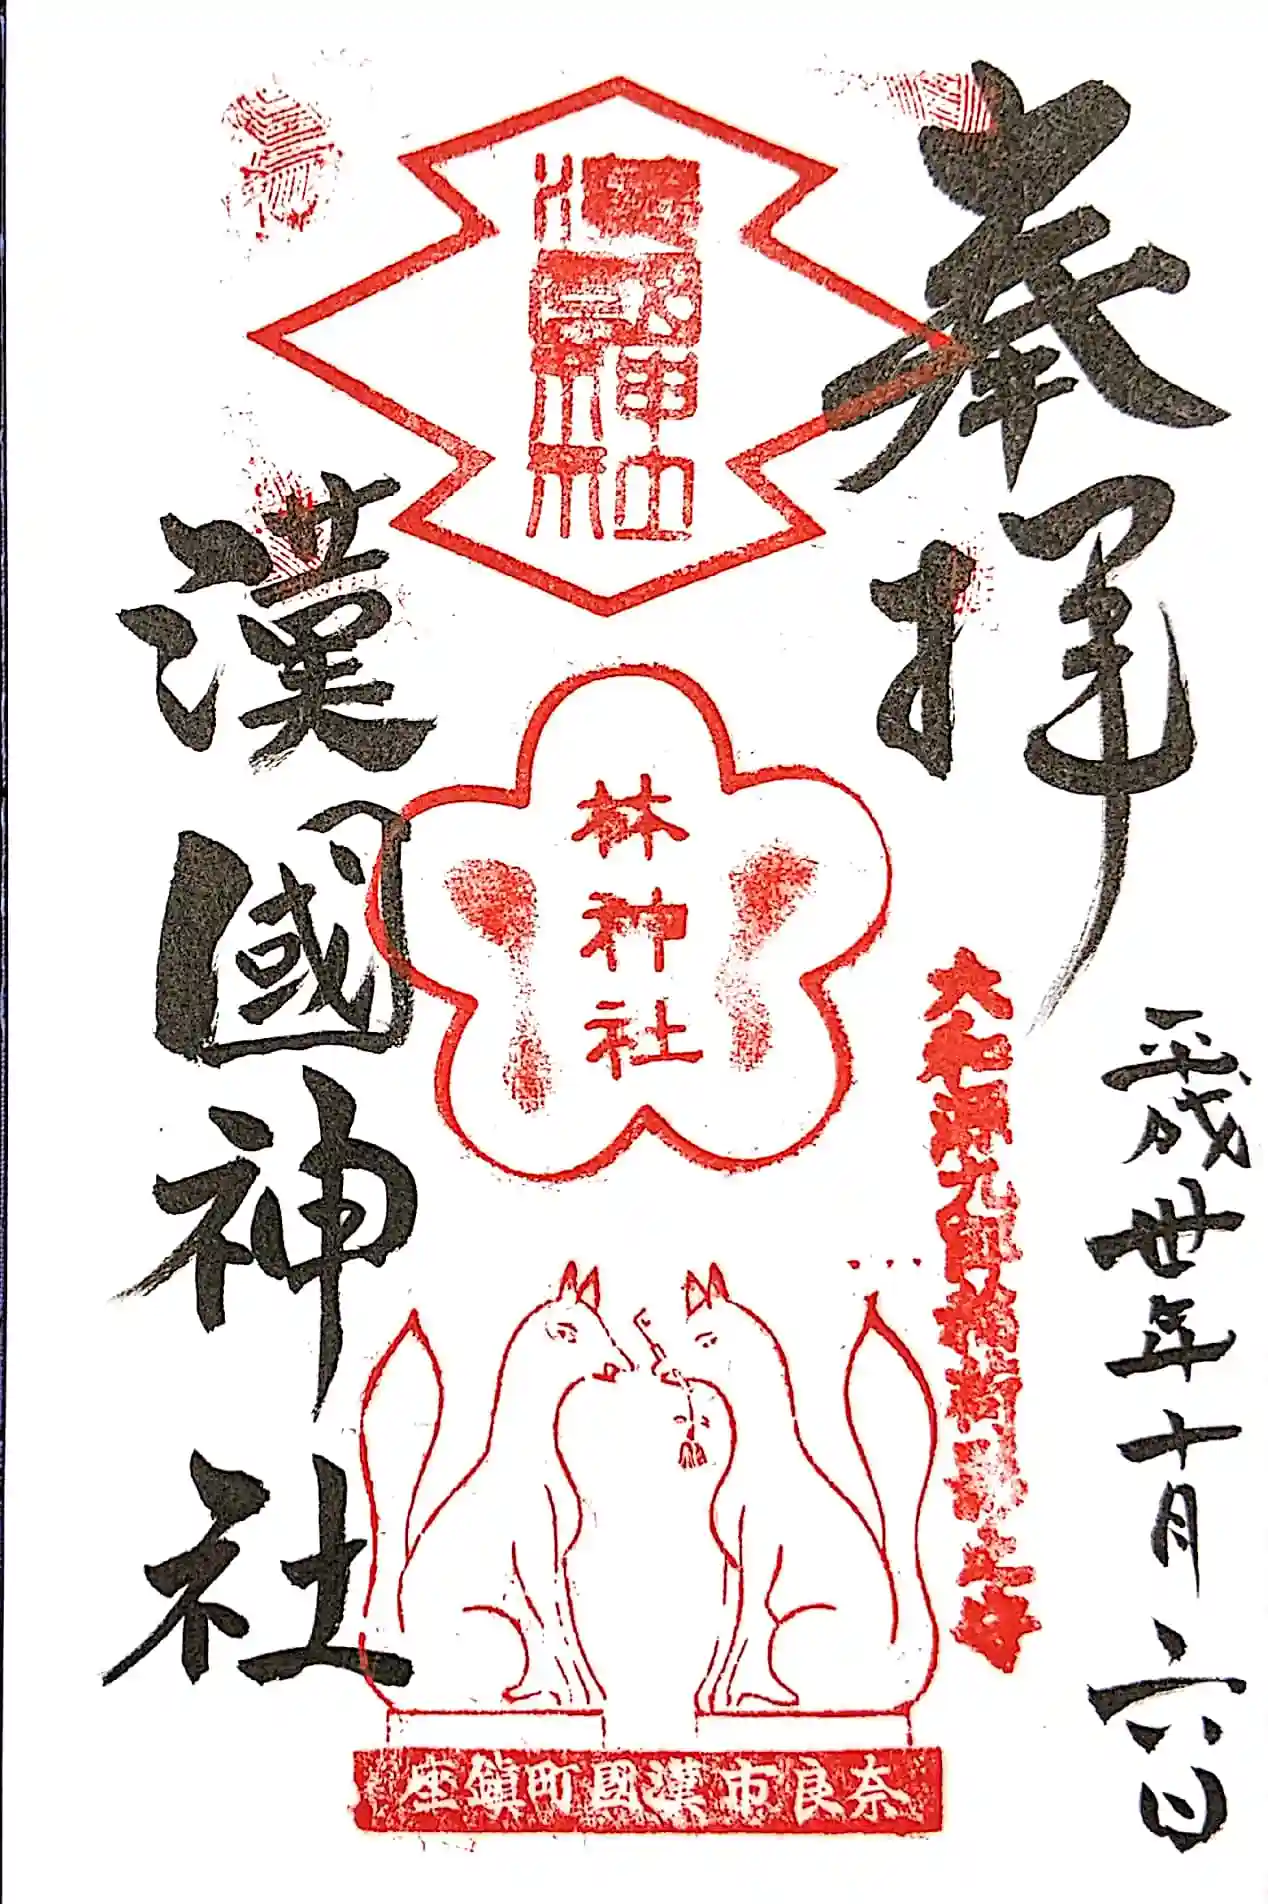 奉拝
平成丗年十月六日
漢國神社
林神社
奈良市漢國町鎮座